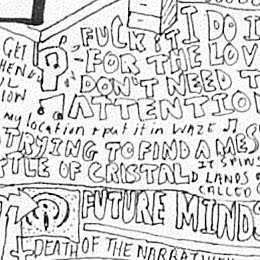 FUCK IT I DO I
-FOR THE LOV
DON'T NEED T
ATTENTIO
GET
my location + put it in WAZE
TRYING TO FIND A MES
TLE OF CRISTAL
IT SPINS
D LANDS O
CALLED
FUTURE MINDS
DEATH OF THE NARRATIV